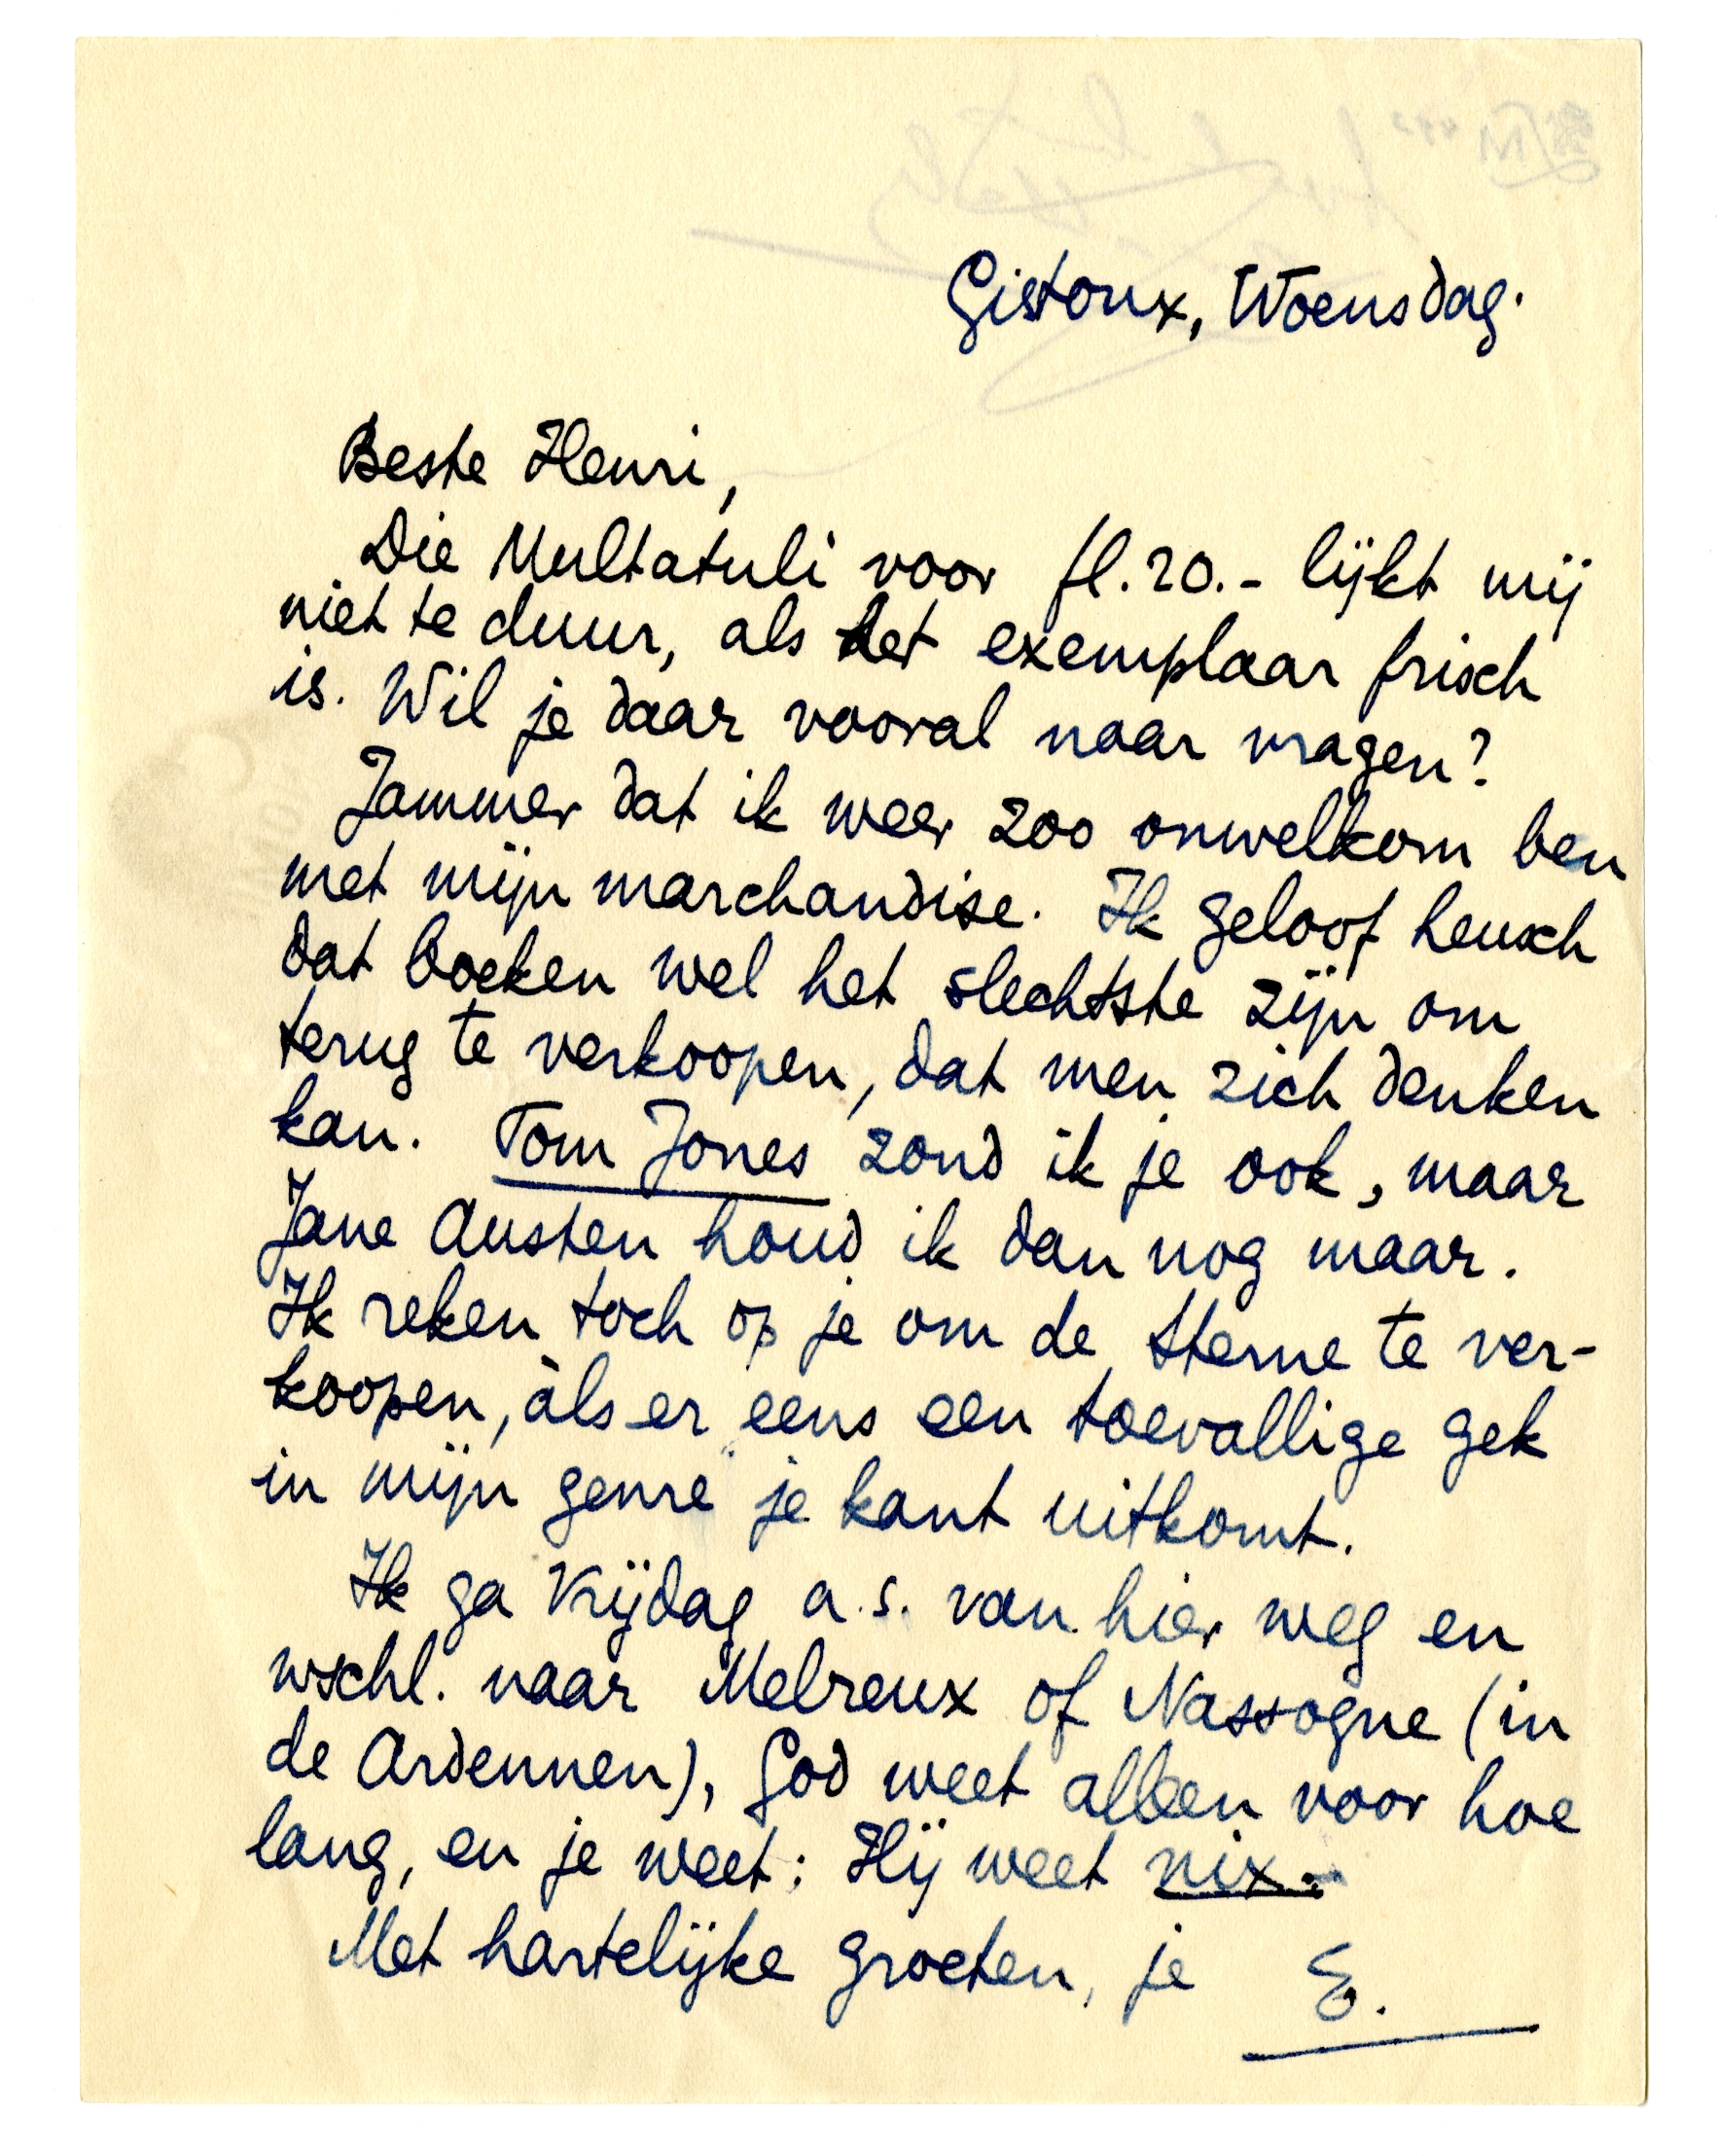 Gistoux, Woensdag.
Beste Henri,
Die Multatuli voor fl. 20.- lijkt mij
niet te duur, als het exemplaar frisch
is. Wil je daar vooral naar vragen?
Jammer dat ik weer zoo onwelkom ben
met mijn marchandise. Ik geloof heusch
dat boeken wel het slechtste zijn om
terug te verkoopen, dat men zich denken
kan. Tom Jones zond ik je ook, maar
Jane Austen houd ik dan nog maar.
Ik reken toch op je om de Sterne te ver-
koopen, àls er eens een toevallige gek
in mijn genre" je kant uitkomt.
Ik ga Vrijdag a.s. van hier weg en
wschl. naar Melreux of Nassogne (in
de Ardennen), God weet alleen voor hoe
lang, en je weet: Hij weet nix.
Met hartelijke groeten, je E.